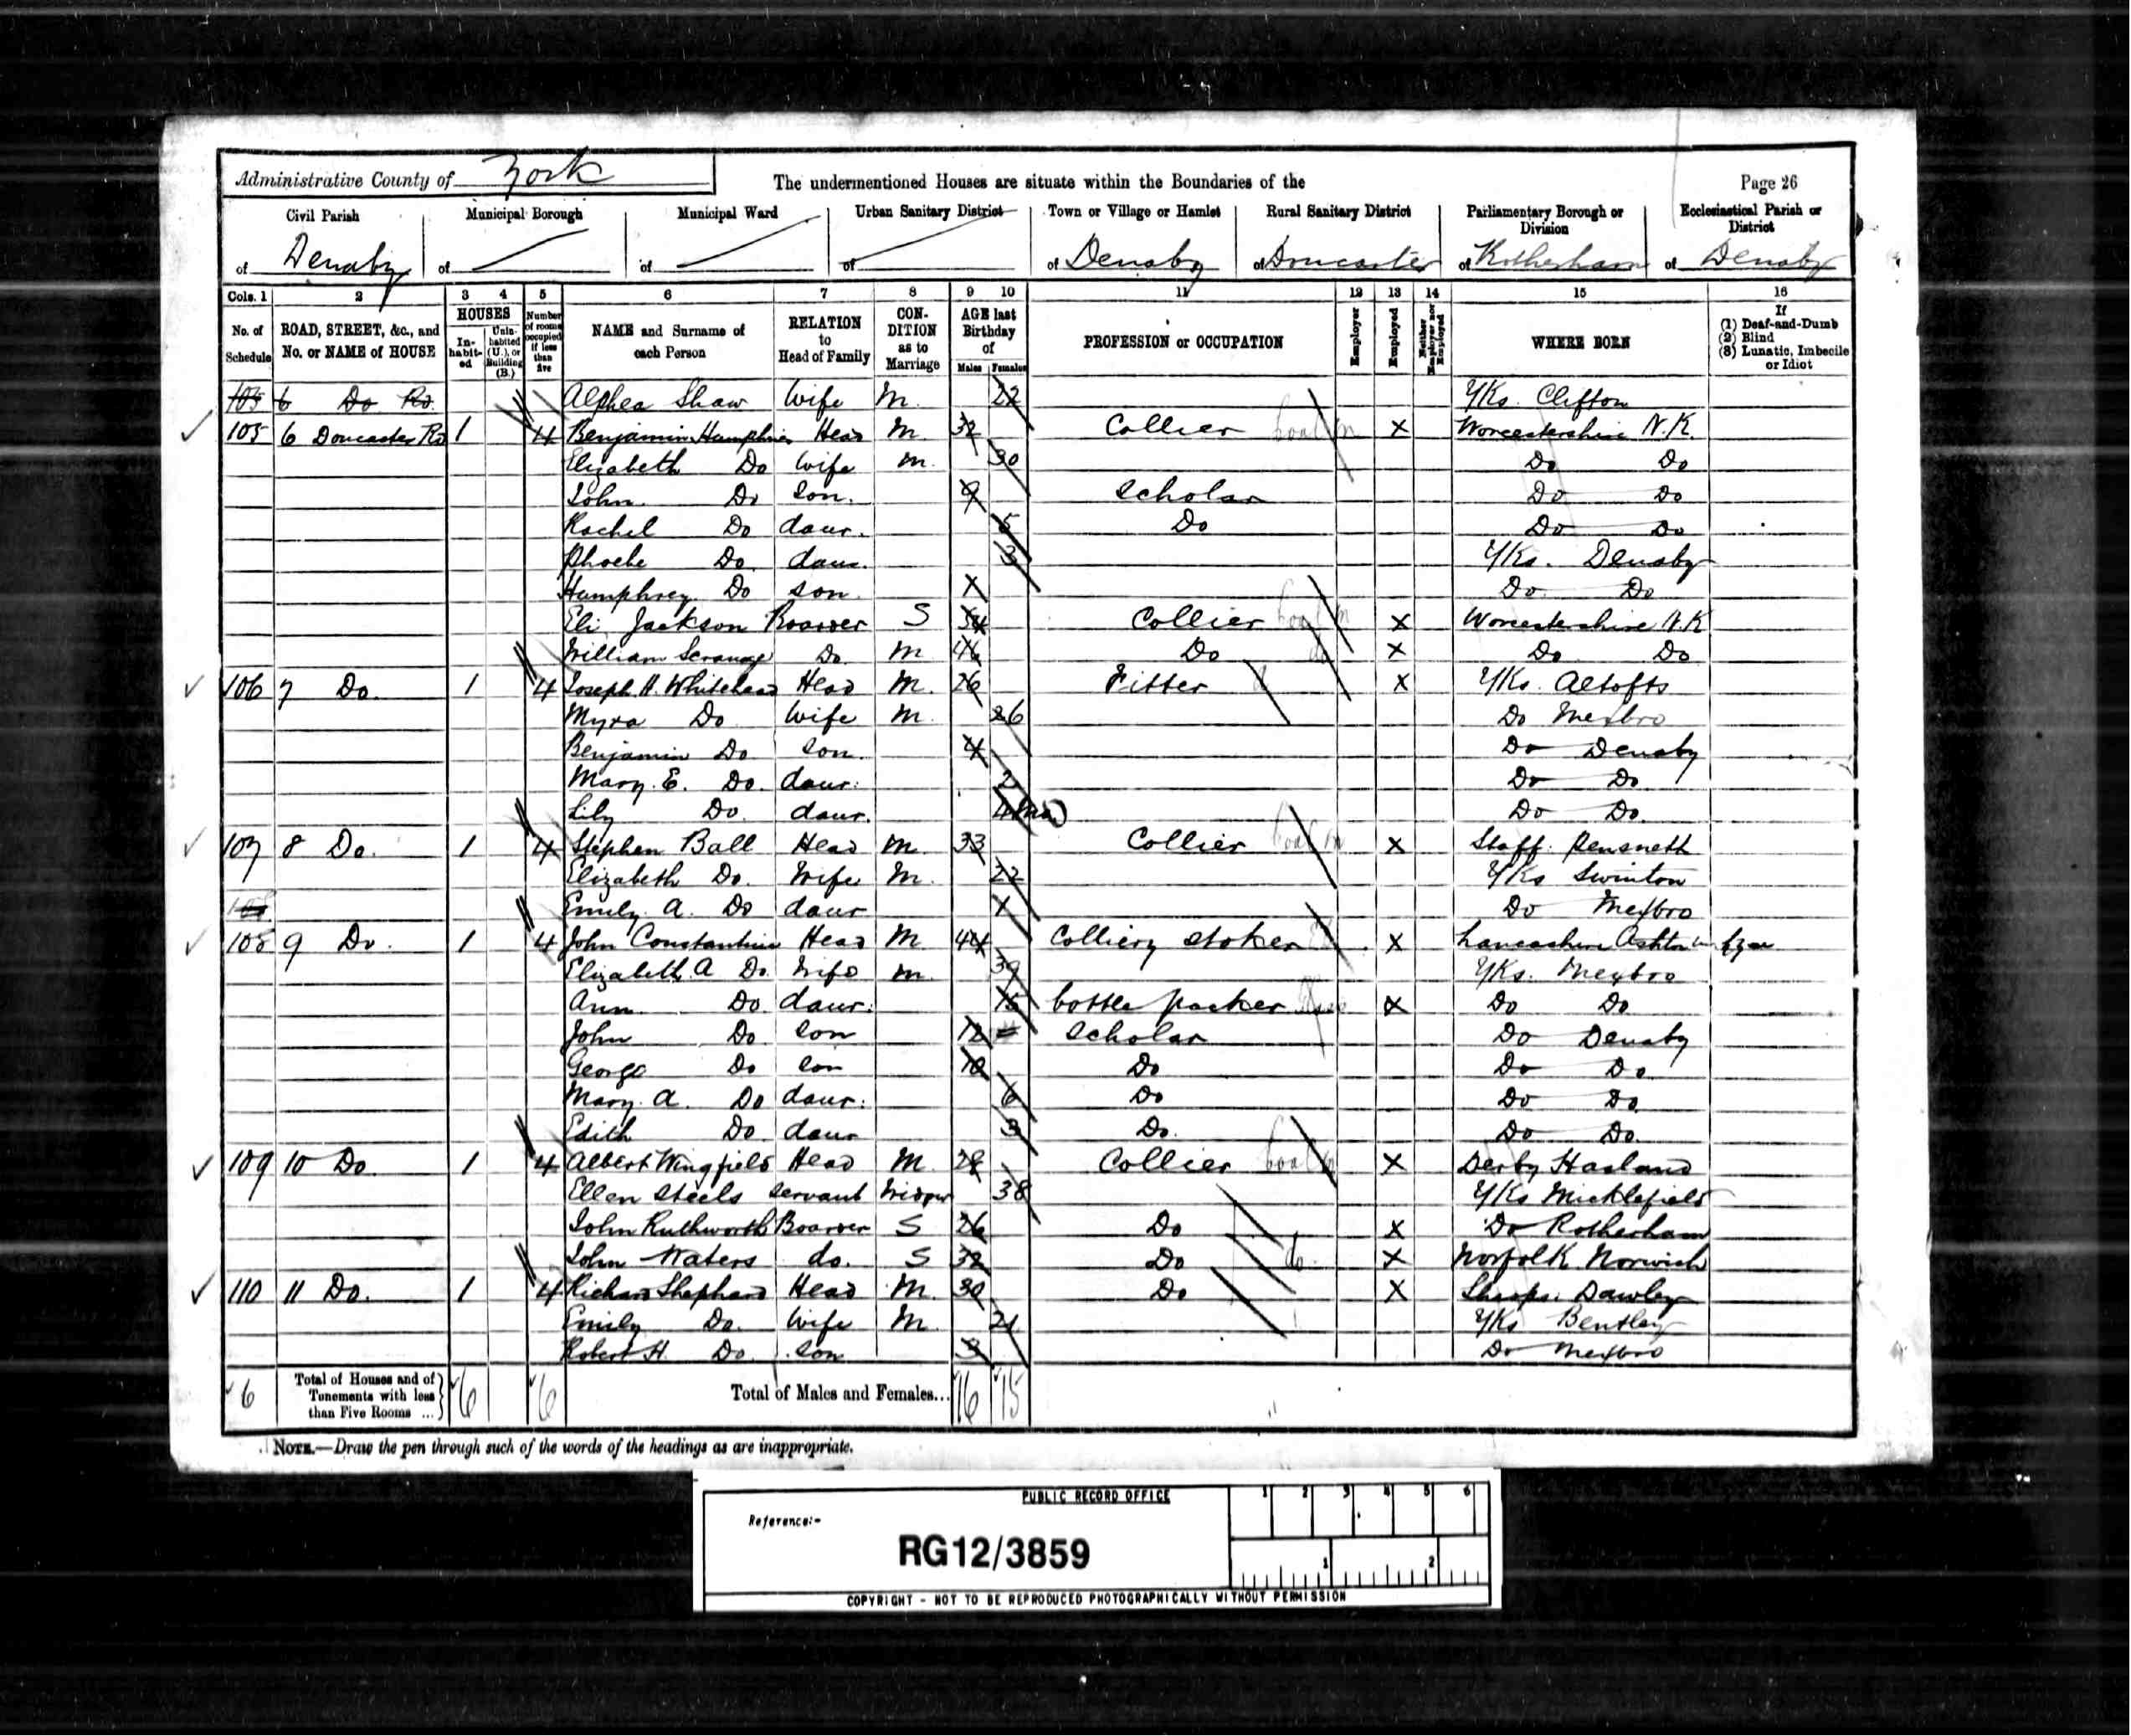 Administrative County of York
The undermentioned Houses are situate within the Boundaries of the
Page 26
Civil Parish of Denaby
Municipal Borough of
Municipal Ward of
Urban Sanitary District of
Town or Village or Hamlet of Denaby
Rural Sanitary District of Doncaster
Parliamentary Borough or Division of Rotherham
Ecclesiastical Parish or District of Denaby
Cols. 1 2 3 4 5 6 7 8 9 10 11 12 13 14 15 16
No. of Schedule
ROAD, STREET, &c., and No. or NAME of HOUSE
HOUSES
In-habit-ed
Unin-habited (U.), or Building (B.)
Number of rooms occupied if less than five
NAME and Surname of each Person
RELATION to Head of Family
CON-DITION as to Marriage
AGE last Birthday of
Males Females
PROFESSION or OCCUPATION
Employer
Employed
Neither Employer nor Employed
WHERE BORN
If (1) Deaf-and-Dumb (2) Blind (3) Lunatic, Imbecile or Idiot
105 6 Do Rd. Alphea Shaw Wife M. 22 Yks. Clifton
105 6 Doncaster Rd 1 4 Benjamin Humphries Head M. 32 Collier X Worcestershire N.K.
Elizabeth Do Wife M. 30 Do Do
John Do Son. 9 Scholar Do Do
Rachel Do daur. 5 Do Do Do
Phoebe Do. daur. 3 Yks. Denaby
Humphrey Do son. Do Do
Eli Jackson Boarder S 34 Collier X Worcestershire N.K
William Do. M 46 Do X Do Do
106 7 Do. 1 4 Joseph H. Whitehead Head M. 26 Fitter X Yks. Altofts
Myra Do Wife M. 26 Do Mexbro
Benjamin Do Son. 4 Do Denaby
Mary. E. Do. daur. 2 Do Do
Lily Do. daur. 4 Mo Do Do.
107 8 Do. 1 4 Stephen Ball Head M. 33 Collier X Staff. Pensneth
Elizabeth Do. Wife M. 22 Yks Swinton
Emily. A. Do daur Do Mexbro
108 9 Do. 1 4 John Constantine Head M. 44 Colliery Stoker X Lancashire Ashton
Elizabeth. A Do. Wife M. 39 Yks. Mexbro
Ann. Do. daur. bottle packer X Do Do
John Do. Son 12 Scholar Do Denaby
George Do Son 10 Do Do Do.
Mary. A. Do daur. 6 Do Do Do.
Edith Do. daur 3 Do. Do Do.
109 10 Do. 1 4 Albert Wingfield Head M. 28 Collier X Derby Hasland
Ellen Steels Servant Widow 38 Yks Micklefield
John Ruthworth Boarder S 26 Do X Do Rotherham
John Waters do. S 32 Do do X Norfolk Norwich
110 11 Do. 1 4 Richard Shephard Head M. 30 Do X Shrops. Dawley
Emily Do. Wife M. 21 Yks Bentley
Robert H. Do. son 3 Do Mexbro
6 Total of Houses and of Tenements with less than Five Rooms ... 6 6 Total of Males and Females... 16 15
NOTE.—Draw the pen through such of the words of the headings as are inappropriate.
PUBLIC RECORD OFFICE
1 2 3 4 5 6
Reference:-
RG12/3859
1 2
COPYRIGHT - NOT TO BE REPRODUCED PHOTOGRAPHICALLY WITHOUT PERMISSION